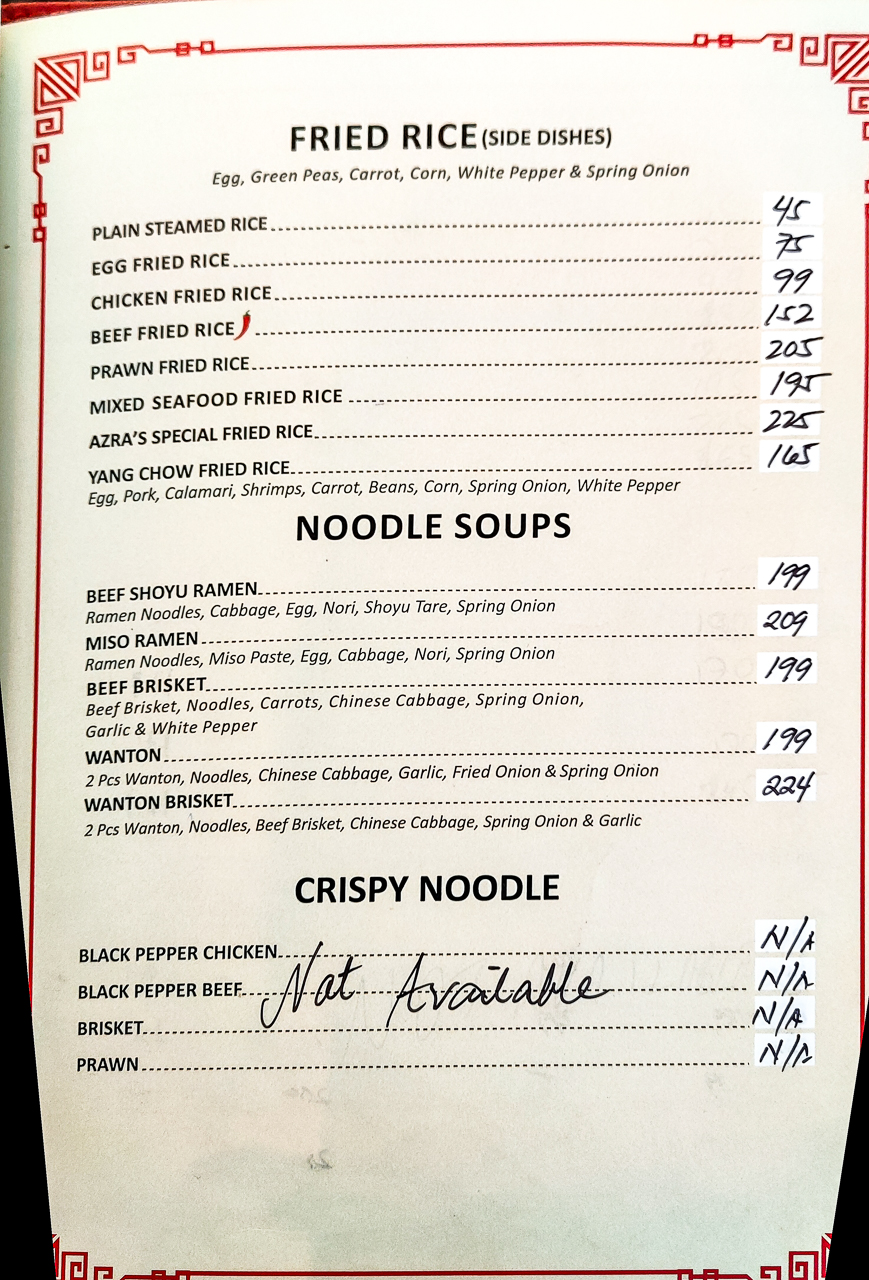 FRIED RICE (SIDE DISHES)
Egg, Green Peas, Carrot, Corn, White Pepper & Spring Onion
PLAIN STEAMED RICE 45
EGG FRIED RICE 75
CHICKEN FRIED RICE 99
BEEF FRIED RICE 152
PRAWN FRIED RICE 205
MIXED SEAFOOD FRIED RICE 195
AZRA'S SPECIAL FRIED RICE 225
YANG CHOW FRIED RICE 165
Egg, Pork, Calamari, Shrimps, Carrot, Beans, Corn, Spring Onion, White Pepper
NOODLE SOUPS
BEEF SHOYU RAMEN 199
Ramen Noodles, Cabbage, Egg, Nori, Shoyu Tare, Spring Onion
MISO RAMEN 209
Ramen Noodles, Miso Paste, Egg, Cabbage, Nori, Spring Onion
BEEF BRISKET 199
Beef Brisket, Noodles, Carrots, Chinese Cabbage, Spring Onion,
Garlic & White Pepper
WANTON 199
2 Pcs Wanton, Noodles, Chinese Cabbage, Garlic, Fried Onion & Spring Onion
WANTON BRISKET 224
2 Pcs Wanton, Noodles, Beef Brisket, Chinese Cabbage, Spring Onion & Garlic
CRISPY NOODLE
BLACK PEPPER CHICKEN N/A
BLACK PEPPER BEEF N/A
Not Available
BRISKET N/A
PRAWN N/A